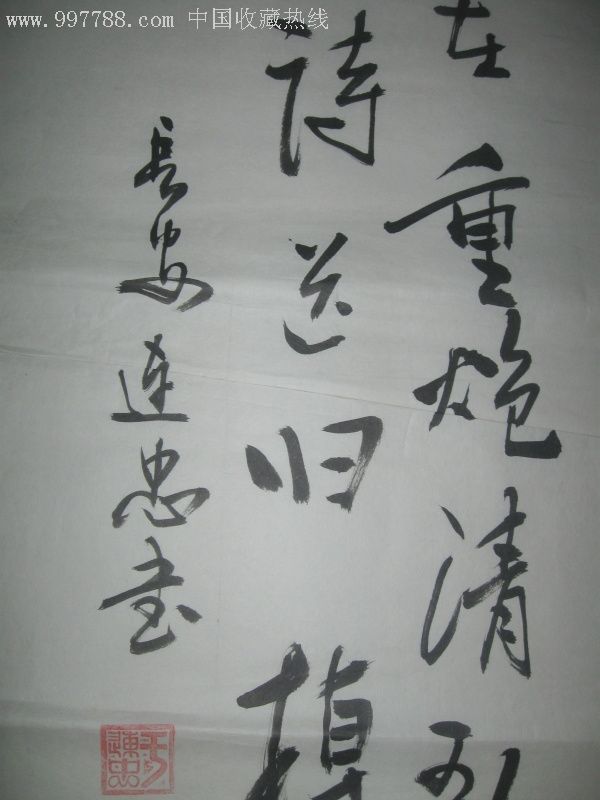 www.997788.com 中国收藏热线
在重炮清
诗送归
长安连忠书